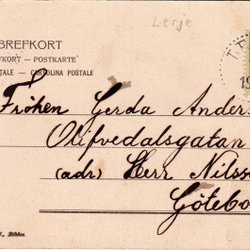 Lerje
BREFKORT
FKORT — POSTKARTE
TALE — CARTOLINA POSTALE
19
Fröken Gerda Ander
Olifvedalsgatan
(adr) Herr Nilss
Götebo